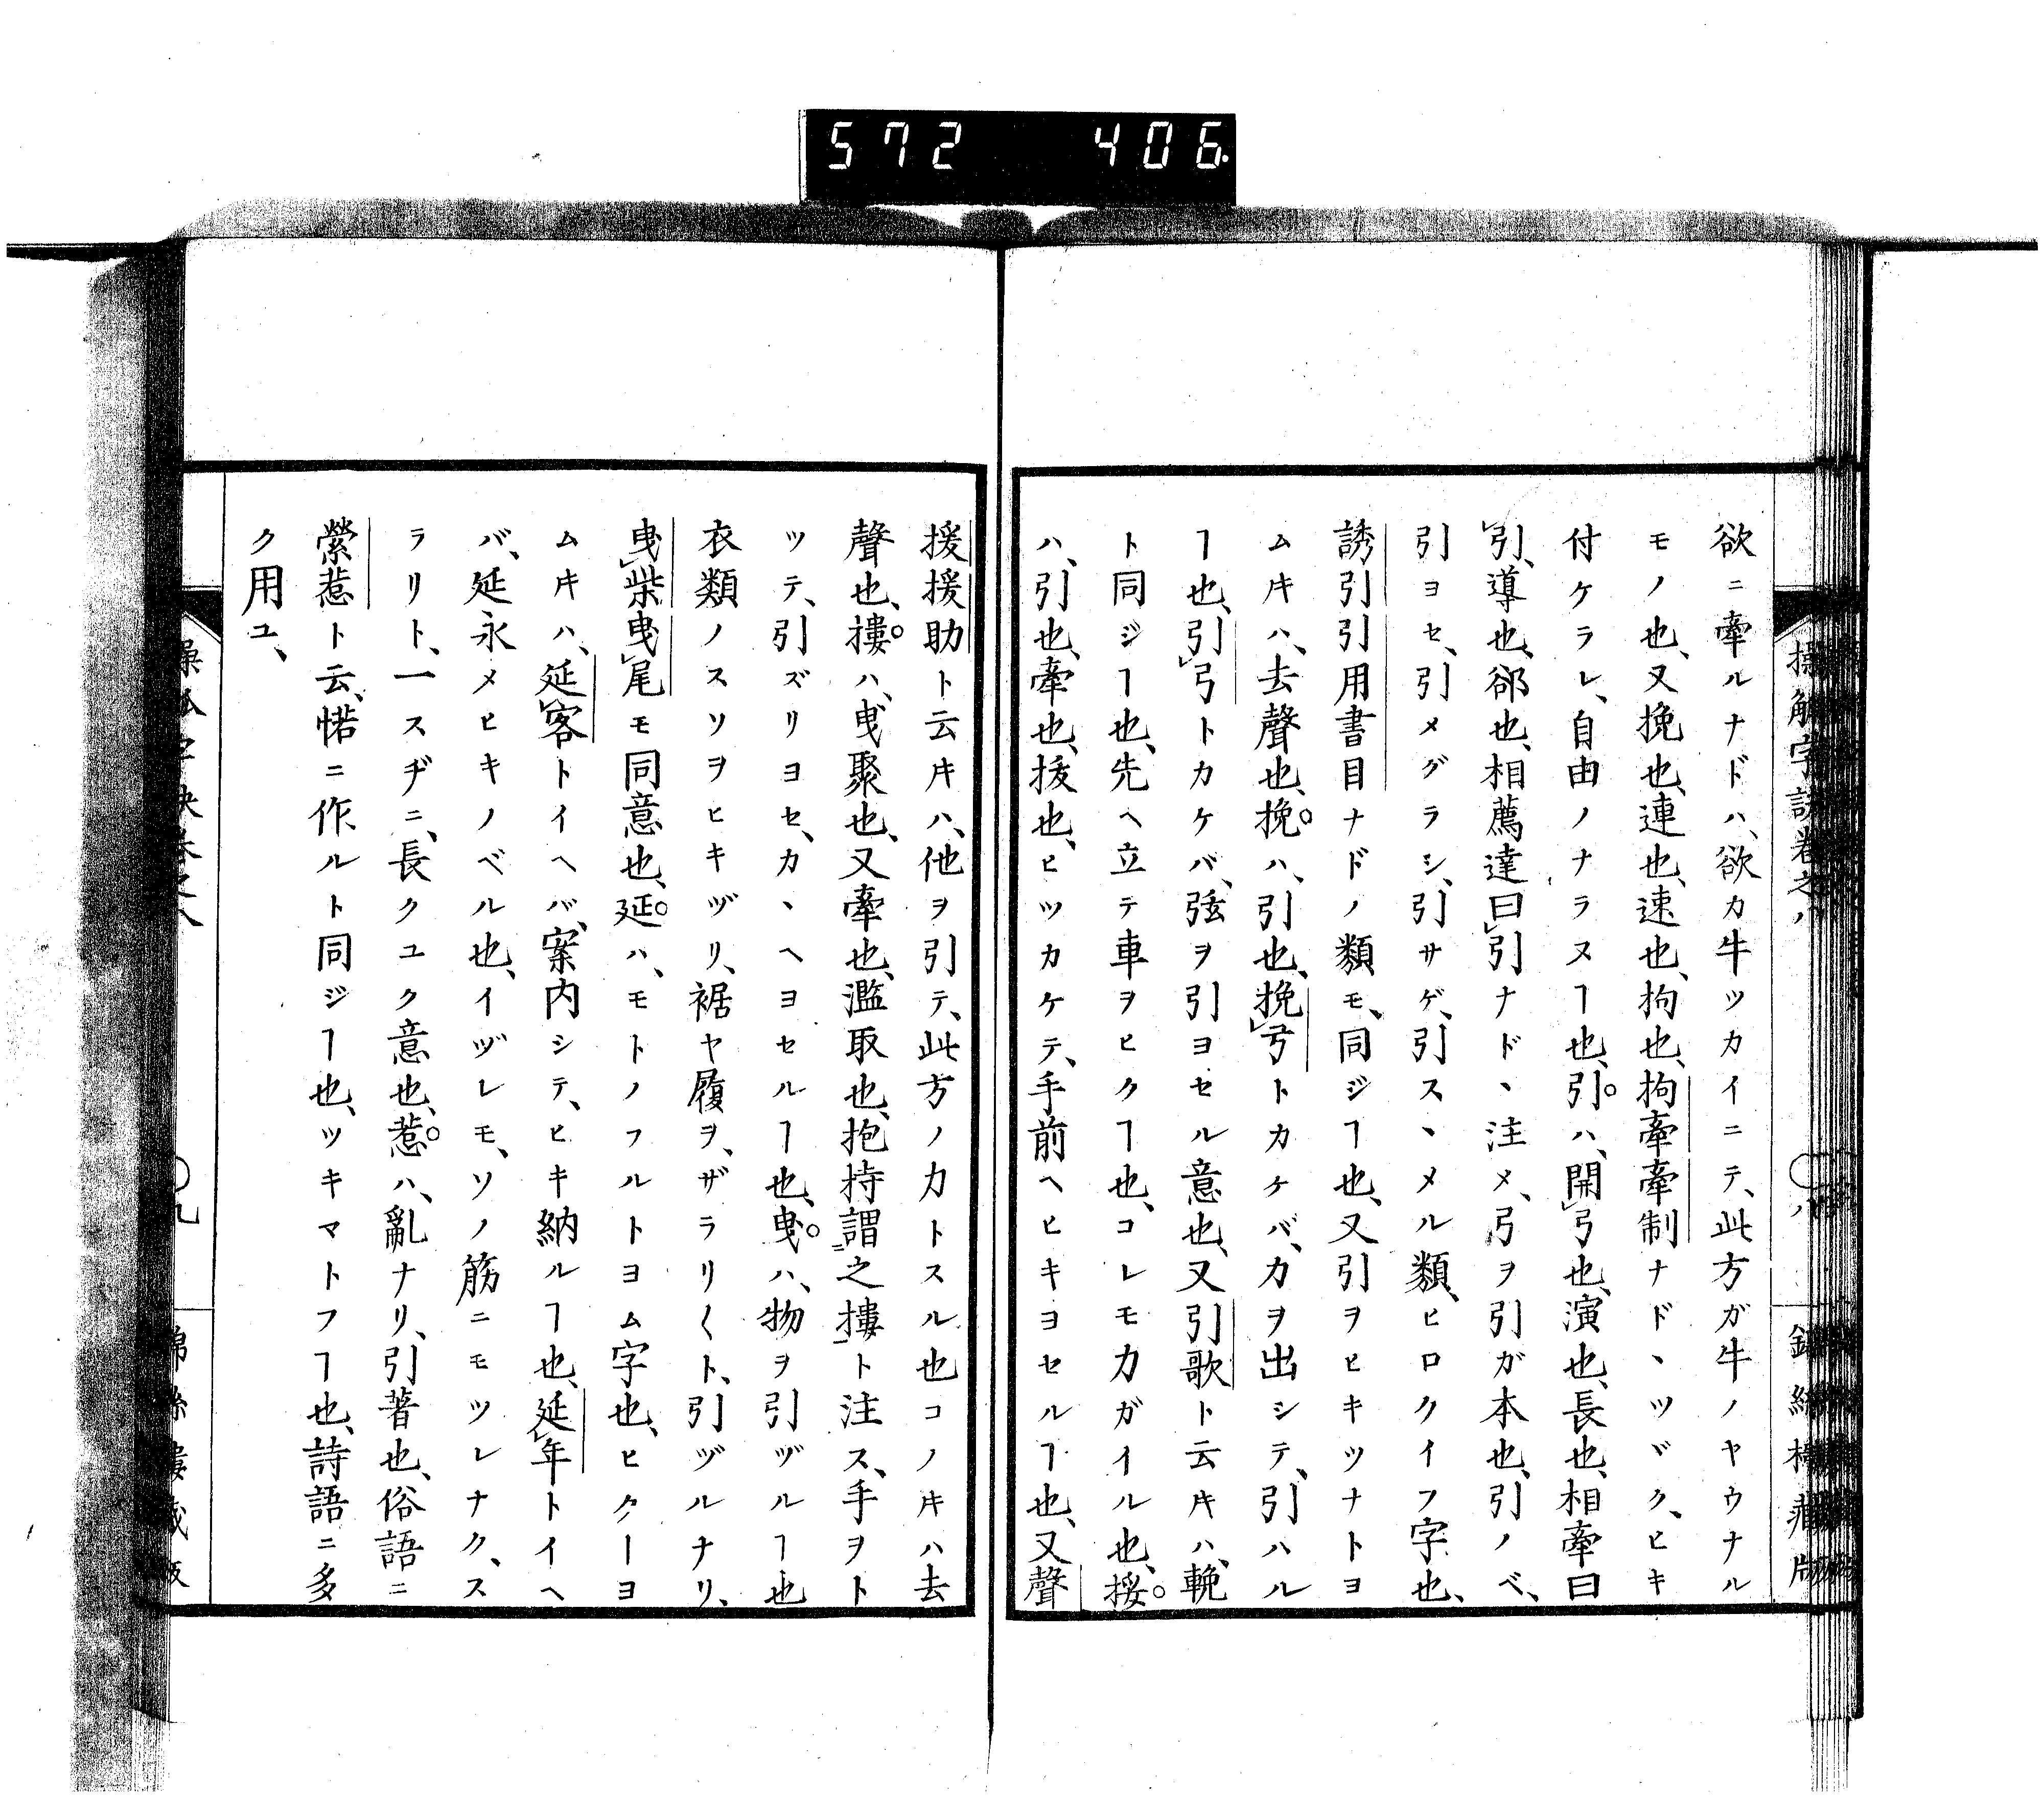 572 406
欲ニ牽ルナドハ、欲カ牛ツカイニテ、此方ガ牛ノヤウナル
モノ也、又挽也、連也、速也、拘也、拘牽牽制ナド、ツヾク、ヒキ
付ケラレ、自由ノナラヌヿ也、引。ハ、開弓也、演也、長也、相牽曰
引、導也、郤也、相薦達曰引ナド、注メ、弓ヲ引ガ本也、引ノベ、
引ヨセ、引メグラシ、引サゲ、引スヽメル類、ヒロクイフ字也、
誘引引用書目ナドノ類モ、同ジヿ也、又引ヲヒキツナトヨ
ムキハ、去聲也、挽。ハ、引也、挽弓トカケバ、力ヲ出シテ、引ハル
ヿ也、引弓トカケバ、弦ヲ引ヨセル意也、又引歌ト云キハ、輓
ト同ジヿ也、先ヘ立テ車ヲヒクヿ也、コレモ力ガイル也、援。
ハ、引也、牽也、拔也、ヒツカケテ、手前ヘヒキヨセルヿ也、又聲
援援助ト云キハ、他ヲ引テ、此方ノ力トスル也コノキハ去
聲也、摟。ハ、曳聚也、又牽也、濫取也、抱持謂之摟ト注ス、手ヲト
ツテ、引ズリヨセ、カヽヘヨセルヿ也、曳。ハ、物ヲ引ヅルヿ也
衣類ノスソヲヒキヅリ、裾ヤ履ヲ、ザラリ〱ト、引ヅルナリ、
曳柴曳尾モ同意也、延。ハ、モトノフルトヨム字也、ヒクーヨ
ムキハ、延客トイヘバ、案内シテ、ヒキ納ルヿ也、延年トイヘ
バ、延永メヒキノベル也、イヅレモ、ソノ筋ニモツレナク、ス
ラリト、一スヂニ、長クユク意也、惹。ハ、亂ナリ、引著也、俗語ニ
縈惹ト云、惹ニ作ルト同ジヿ也、ツキマトフヿ也、詩語ニ多
ク用ユ、